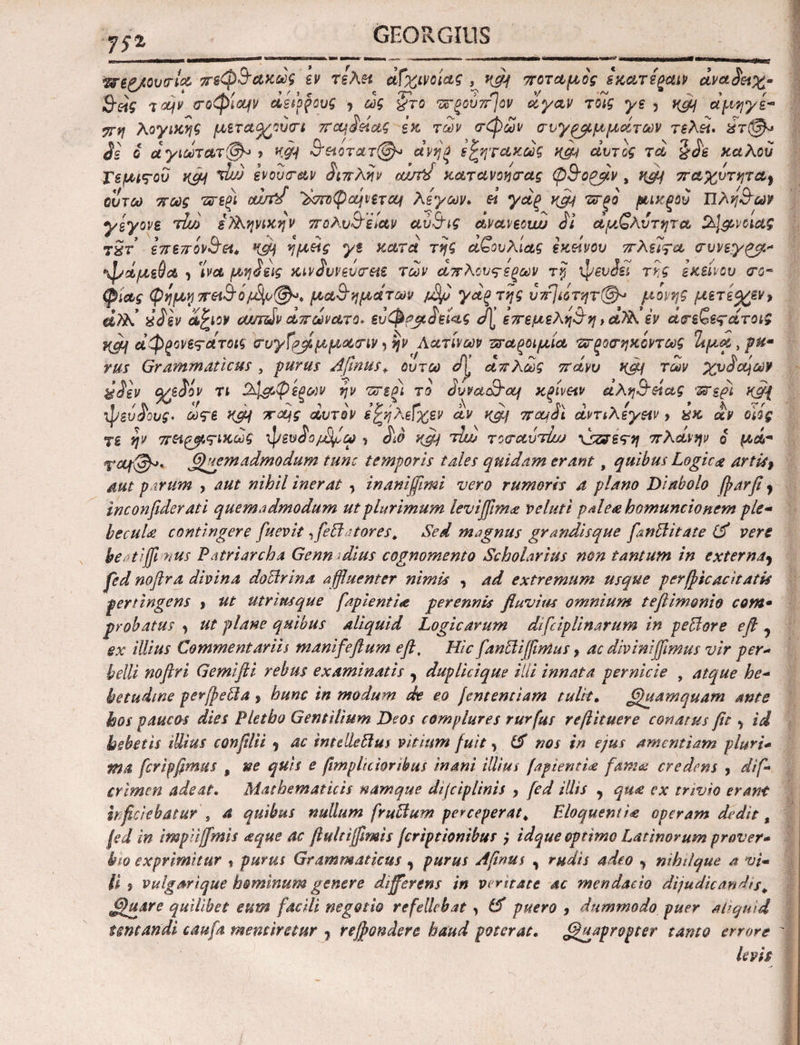 752
GEORGIUS
περιουσία πεφθακὼς ἐν τέλει ἀγχινοίας , καὶ ποταμὸς ἑκατέραιν ἀναδειχ-
θεὶς ταῖν σοφίαιν ἀείρρους , ὡς τοῦτο προὖπτον ἄγαν τοῖς γε , καὶ ἀμηγέ-
πη λογικῆς μετασχοῦσι παιδείας ἐκ τῶν σφῶν συγγραμμάτων τελεῖ. οὗτος
δὲ ὁ ἁγιώτατος , καὶ θειότατος ἀνὴρ ἐξητακὼς καὶ αὐτὸς τὰ τοῦδε καλοῦ
Γεμιστοῦ καὶ τὴν ἐνοῦσαν διπλῆν αὐτῷ κατανοήσας φθορὰν , καὶ παχύτητα,
οὕτω πως περὶ αὐτοῦ ἀποφαίνεται λέγων. εἰ γὰρ καὶ πρὸ μικροῦ Πλήθων
γέγονε τὴν ἑλληνικὴν πολυθεΐαν αὖθις ἀνανεοῦν δι᾽ ἀμβλύτητα διανοίας
τοῦτ᾽ ἐπεπόνθει. καὶ ἡμεῖς γε κατὰ τῆς ἀβουλίας ἐκείνου πλεῖστα συνεγρα-
ψάμεθα , ἵνα μηδεὶς κινδυνεύσειε τῶν ἁπλουστέρων τῇ ψευδεῖ τῆς ἐκείνου σο-
φίας φήμῃ πειθόμενος. μαθημάτων μὲν γὰρ τῆς ὑπτιότητος μόνης μετέσχεν,
ἀλλ᾽ οὐδὲν ἄξιον αὐτῶν ἀπώνατο. εὐφραδείας δ᾽ ἐπεμελήθη, ἀλλ᾽ ἐν ἀσεβεστάτοις
καὶ ἀφρονεστάτοις συγγράμμασιν, ἦν Λατίνων παροιμία προσηκόντως τιμᾷ, pu-
rus Grammaticus , purus Asinus. οὕτω δ᾽ ἁπλῶς πάνυ καὶ τῶν χυδαίων
οὐδὲν σχεδόν τι διαφέρων ἦν περὶ τὸ δύνασθαι κρίνειν ἀληθείας περὶ καὶ
ψεύδους. ὥστε καὶ παῖς αὐτὸν ἐξήλεγχεν ἂν καὶ παιδὶ ἀντιλέγειν, οὐκ ἂν οἷός
τε ἦν πειραστικῶς ψευδομένῳ , διὸ καὶ τὴν τοσαύτην ὑπέστη πλάνην ὁ μά-
ταιος. Quemadmodum tunc temporis tales quidam erant , quibus Logicæ artis,
aut parum , aut nihil inerat , inanissimi vero rumoris a plano Diabolo sparsi ,
inconsiderati quemadmodum ut plurimum levissimæ veluti paleæ homuncionem ple-
beculæ contingere suevit , sectatores. Sed magnus grandisque sanctitate & vere
beatissimus Patriarcha Gennadius cognomento Scholarius non tantum in externa,
sed nostra divina doctrina affluenter nimis , ad extremum usque perspicacitatis
pertingens , ut utriusque sapientiæ perennis fluvius omnium testimonio com-
probatus , ut plane quibus aliquid Logicarum disciplinarum in pectore est ,
ex illius Commentariis manifestum est. Hic sanctissimus , ac divinissimus vir per-
belli nostri Gemisti rebus examinatis , duplicique illi innata pernicie , atque he-
betudine perspecta , hunc in modum de eo sententiam tulit. Quamquam ante
hos paucos dies Pletho Gentilium Deos complures rursus restituere conatus sit , id
hebetis illius consilii , ac intellectus vitium fuit , & nos in ejus amentiam pluri-
ma scripsimus , ne quis e simplicioribus inani illius sapientiæ famæ credens , dis-
crimen adeat. Mathematicis namque disciplinis , sed illis , quæ ex trivio erant
inficiebatur , a quibus nullum fructum perceperat. Eloquentiæ operam dedit ,
sed in impiissmis æque ac stultissimis scriptionibus ; idque optimo Latinorum prover-
bio exprimitur , purus Grammaticus , purus Asinus , rudis adeo , nihilque a vi-
li , vulgarique hominum genere differens in veritate ac mendacio dijudicandis.
Quare quilibet eum facili negotio refellebat , & puero , dummodo puer aliquid
tentandi causa mentiretur , respondere haud poterat. Quapropter tanto errore
levis